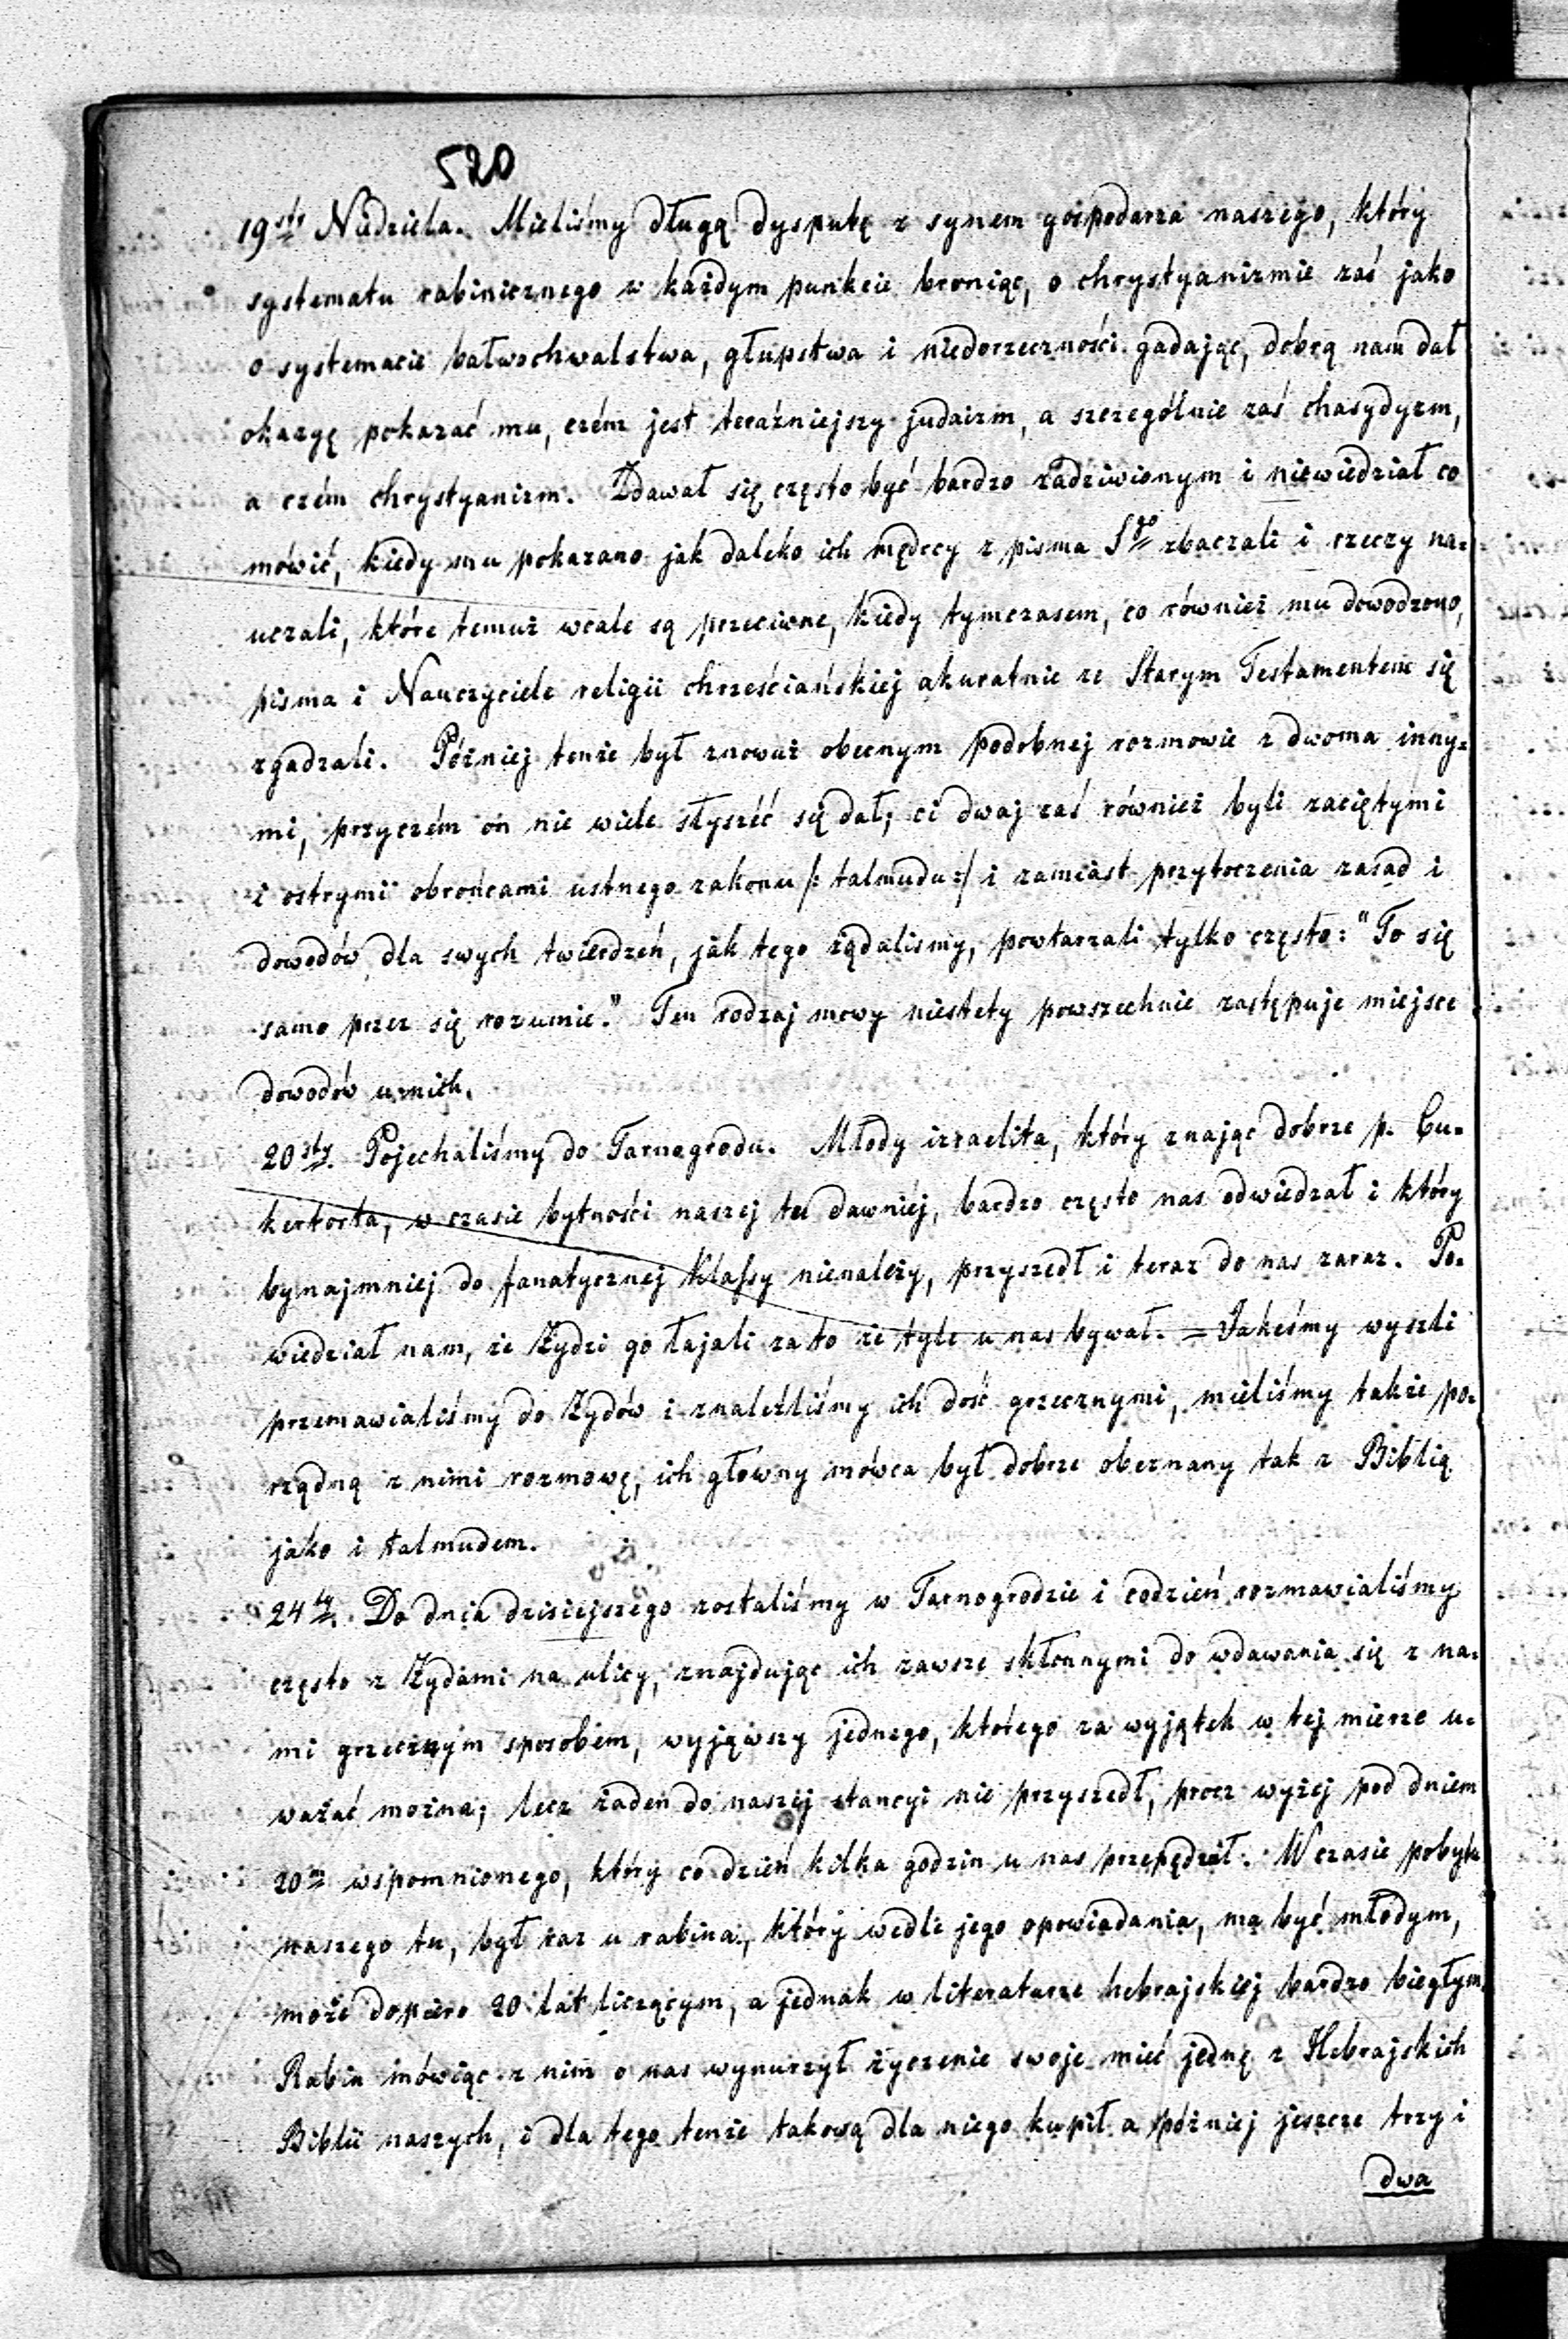 520
19sty Niedziela. Mieliśmy długą dysputę z synem gospodarza naszego, który
systematu rabinicznego w każdym punkcie broniąc, o chrystyanizmie zaś jako
o systemacie bałwochwalstwa, głupstwa i niedorzeczności gadając, dobrą nam dał
okazyę pokazać mu, czém jest teraźniejszy judaizm, a szczególnie zaś chasydyzm,
a czém chrystyanizm. Zdawał się często być bardzo zadziwionym i niewiedział co
mówić, kiedy mu pokazano jak daleko ich mędrcy z pisma Sgo zbaczali i rzeczy na=
uczali, które temuż wcale są przeciwne, kiedy tymczasem, co również mu dowodzono,
pisma i Nauczyciele religii chrześciańskiej akuratnie ze Starym Testamentem się
zgadzali. Później tenże był znowuż obecnym podobnej rozmowie z dwoma inny=
mi, przyczém on nie wiele słyszéć się dał; ci dwaj zaś również byli zaciętymi
i ostrymi obrońcami ustnego zakonu /: talmudu :/ i zamiast przytoczenia zasad i
dowodów dla swych twierdzeń, jak tego żądaliśmy, powtarzali tylko często: "To się
samo przez się rozumie." Ten rodzaj mowy niestety powszechnie zastępuje miejsce
dowodów u nich.
20sty. Pojechaliśmy do Tarnogrodu. Młody izraelita, który znając dobrze p. Cu=
kertorta, w czasie bytności naszej tu dawniej, bardzo często nas odwiedzał i który
bynajmniej do fanatycznej klassy nienależy, przyszedł i teraz do nas zaraz. Po=
wiedział nam, że Żydzi go łajali za to że tyle u nas bywał. = Jakeśmy wyszli
przemawialiśmy do Żydów i znaleźliśmy ich dość grzecznymi, mieliśmy także po=
rządną z nimi rozmowę; ich głowny mówca był dobrze obeznany tak z Biblią
jako i talmudem.
24ty. Do dnia dzisiejszego zostaliśmy w Tarnogrodzie i codzień rozmawialiśmy
często z Żydami na ulicy, znajdując ich zawsze skłonnymi do wdawania się z na=
mi grzecznym sposobem, wyjąwszy jednego, którego za wyjątek w tej mierze u=
ważać można; lecz żaden do naszéj stancyi nie przyszedł, procz wyżej pod dniem
20m wspomnionego, który co dzień kilka godzin u nas przepędzał. W czasie pobytu
naszego tu, był raz u rabina, który wedle jego opowiadania, ma być młodym,
może dopiero 20 lat liczącym, a jednak w literaturze hebrajskiej bardzo biegłym.
Rabin mówiąc z nim o nas wynurzył życzenie swoje mieć jednę z Hebrajskich
Biblii naszych, i dla tego tenże takową dla niego kupił a później jeszcze trzy i
dwa